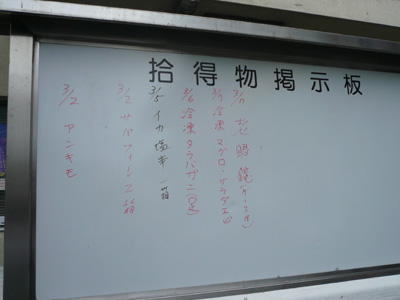 拾得物掲示板
3/11 老眼鏡(ケース付)
3/9 冷凍マグロ
3/6 冷凍タラバガニ(足)
3/5 イカ塩辛一箱
3/2 サバフィーレ2箱
3/2 アンキモ